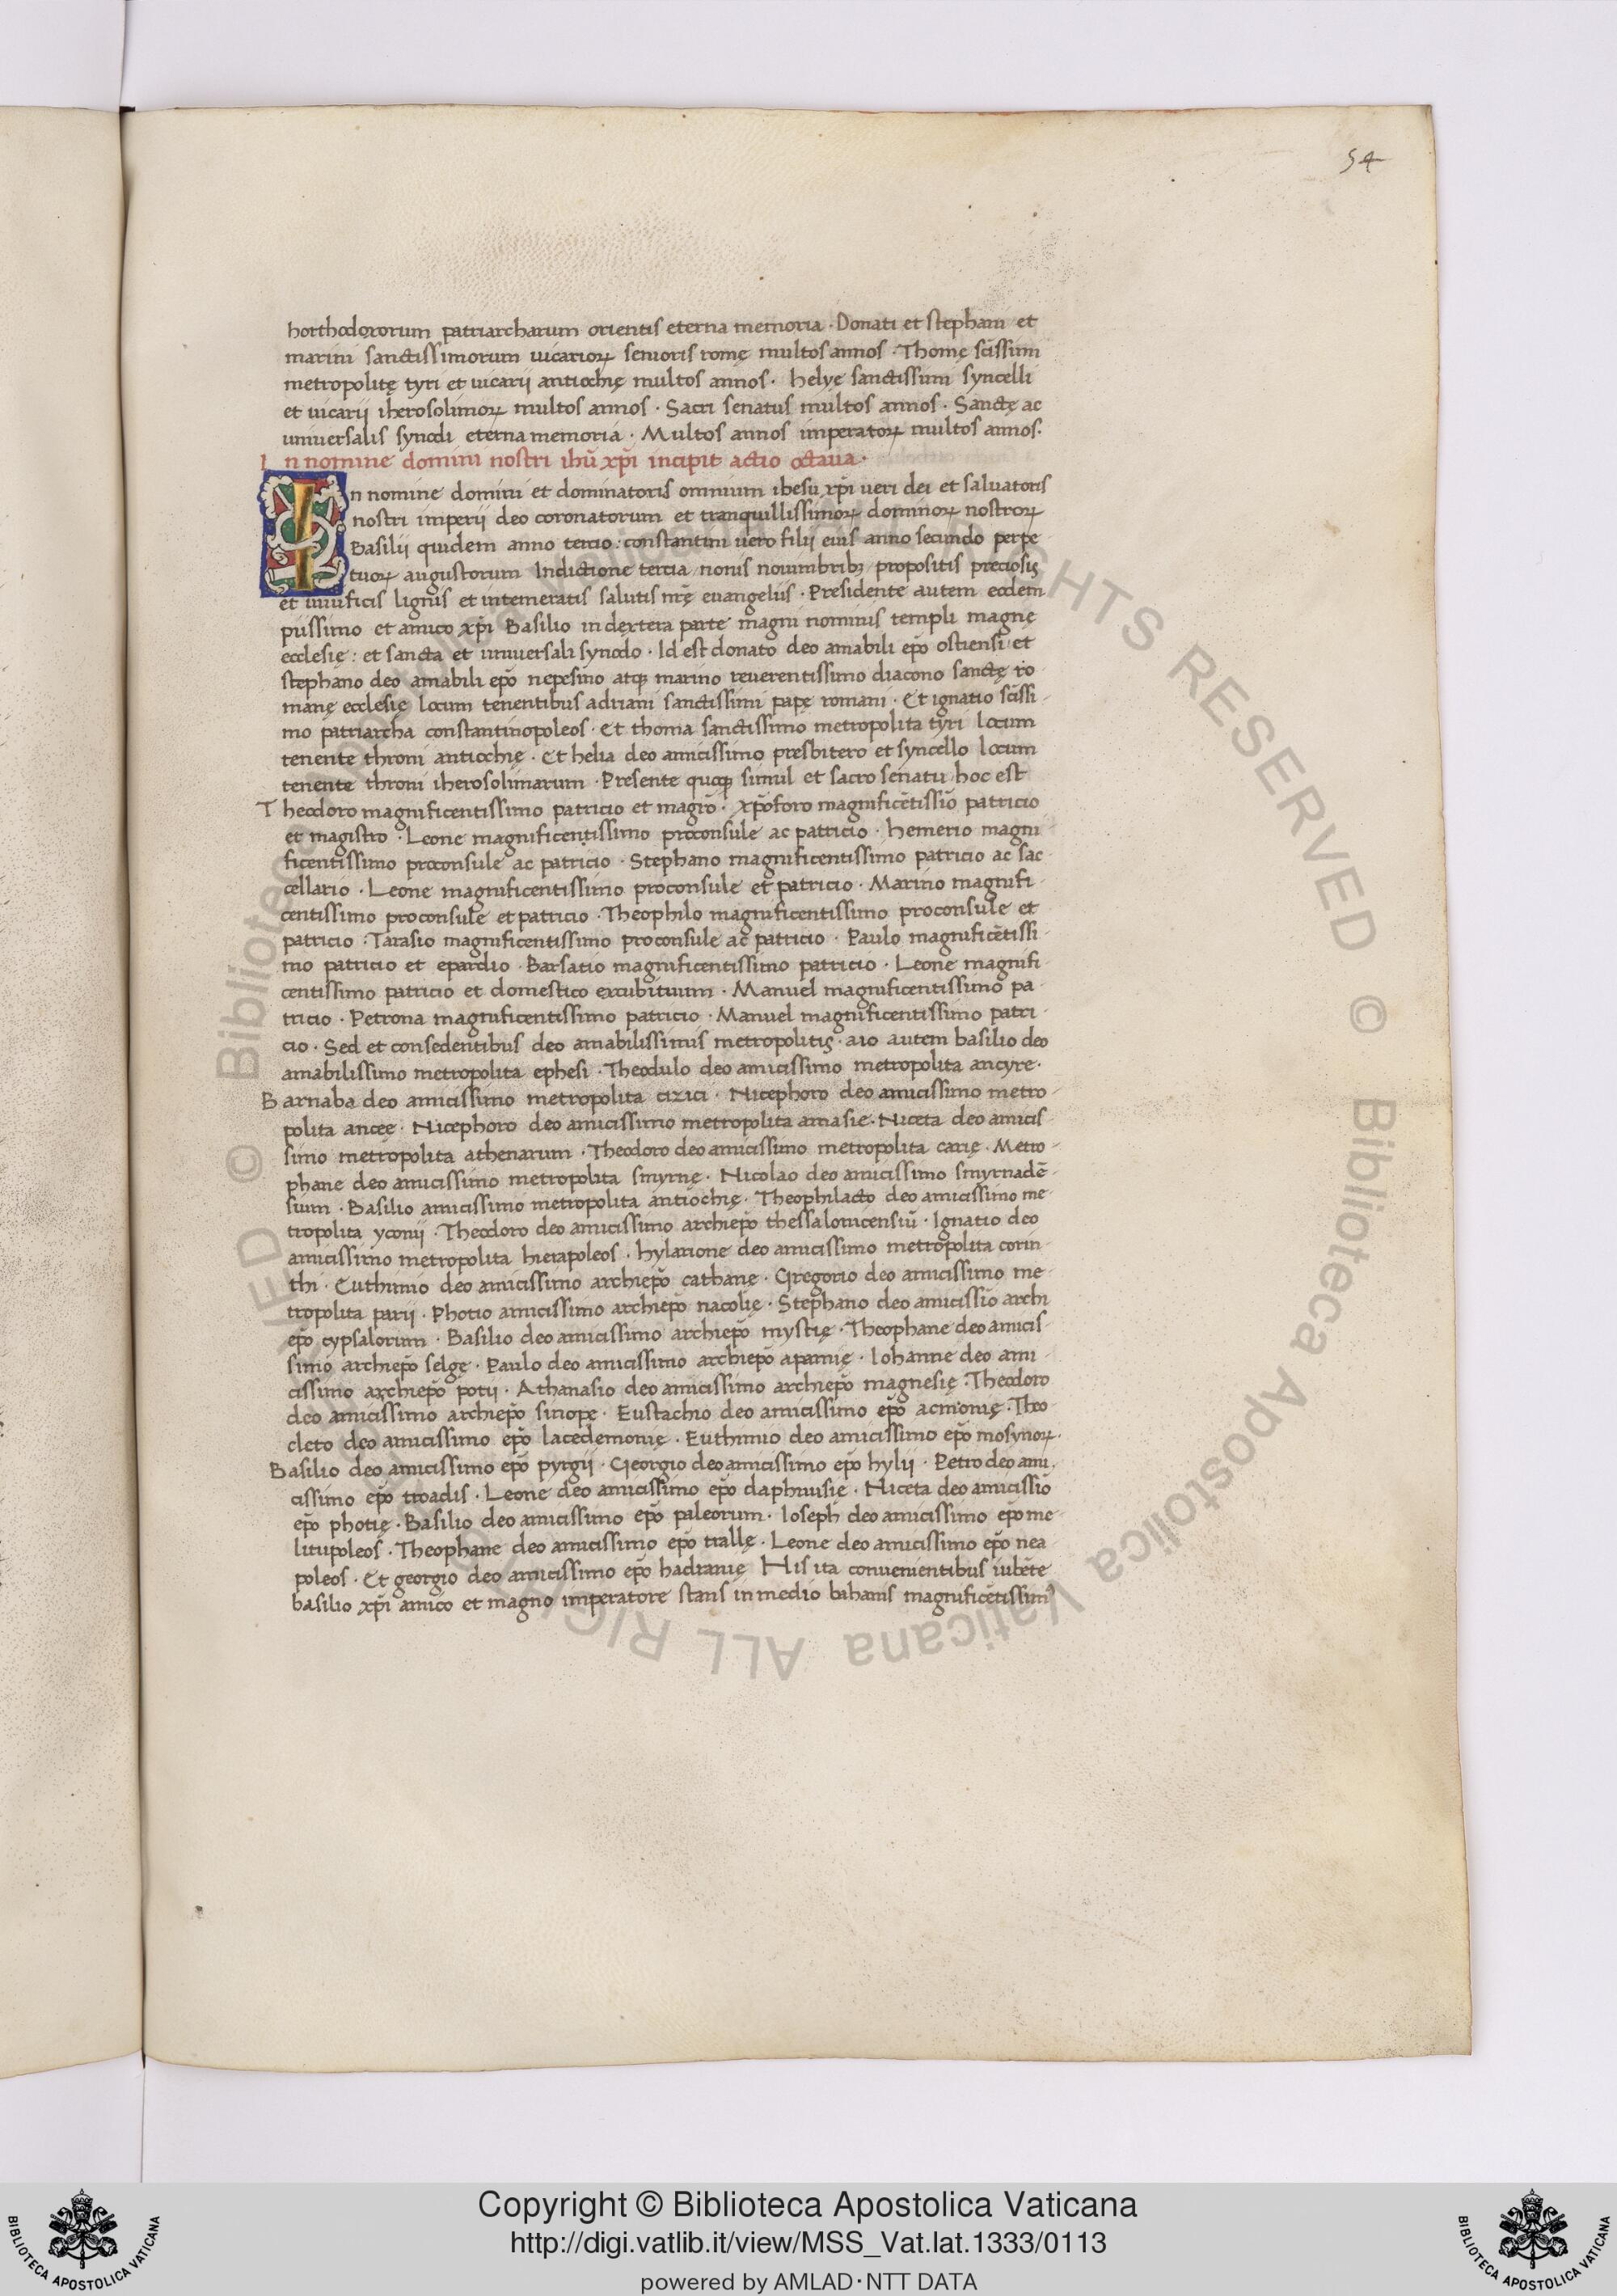 54
horthodoxorum patriarcharum orientis eterna memoria · Donati et stephani et
marini sanctissimorum uicarioꝝ senioris romę multos annos · Thomę scissimi
metropolitę tyri et uicarii antiochię multos annos · helyę sanctissimi syncelli
et uicarij iherosolimoꝝ multos annos · Sacri senatus multos annos · Sanctę ac
uniuersalis synodi eterna memoria · Multos annos imperatoꝝ multos annos.
In nomine domini nostri ihū xp̄i incipit actio octaua ·
In nomine domini et dominatoris omnium ihesu xp̄i ueri dei et saluatoris
nostri imperii deo coronatorum et tranquillissimoꝝ dominoꝝ nostroꝝ
Basilii quidem anno tercio : constantini uero filii eius anno secundo perpe
tuoꝝ augustorum Indictione tercia nonis nouimbribꝫ propositis preciosis
et uiuificis lignis et intemeratis salutis nr̄ę euangeliis · Presidente autem eodem
piissimo et amico xp̄i Basilio in dextera parte magni nominis templi magnę
ecclesię : et sancta et uniuersali synodo · Id est donato deo amabili ep̄o ostiensi et
stephano deo amabili ep̄o nepesino atqꝫ marino reuerentissimo diacono sanctę ro
manę ecclesię locum tenentibus adriani sanctissimi papę romani · Et ignatio scissi
mo patriarcha constantinopoleos · Et thoma sanctissimo metropolita tyri locum
tenente throni antiochię · Et helia deo amicissimo presbitero et syncello locum
tenente throni iherosolimarum · Presente quoqꝫ simul et sacro senatu hoc est
Theodoro magnificentissimo patricio et magr̄o · xp̄oforo magnificētissīo patricio
et magistro · Leone magnificentissimo proconsule ac patricio · hemerio magni
ficentissimo proconsule ac patricio · Stephano magnificentissimo patricio ac sac
cellario · Leone magnificentissimo proconsule et patricio · Marino magnifi
centissimo proconsule et patricio · Theophilo magnificentissimo proconsule et
patricio · Tarasio magnificentissimo proconsule ac patricio · Paulo magnificētissi
mo patricio et epardio · Barsatio magnificentissimo patricio · Leone magnifi
centissimo patricio et domestico excubituum · Manuel magnificentissimo pa
tricio · Petrona magnificentissimo patricio · Manuel magnificentissimo patri
cio · Sed et consedentibus deo amabilissimis metropolitis · aio autem basilio deo
amabilissimo metropolita ephesi · Theodulo deo amicissimo metropolita ancyre ·
Barnaba deo amicissimo metropolita cizici · Nicephoro deo amicissimo metro
polita anceę · Nicephoro deo amicissimo metropolita amasię · Niceta deo amicis
simo metropolita athenarum · Theodoro deo amicissimo metropolita carię · Metro
phane deo amicissimo metropolita smyrnę · Nicolao deo amicissimo smyrnadē
sium · Basilio amicissimo metropolita antiochię · Theophilacto deo amicissimo me
tropolita yconii · Theodoro deo amicissimo archiep̄o thessalonicensiū · Ignatio deo
amicissimo metropolita hierapoleos · hylarione deo amicissimo metropolita corin
thi · Euthimio deo amicissimo archiep̄o cathanę · Gregorio deo amicissimo me
tropolita parij · Photio amicissimo archiep̄o nacolię · Stephano deo amicissīo archi
ep̄o cypsalorum · Basilio deo amicissimo archiep̄o mystię · Theophane deo amicis
simo archiep̄o selgę · Paulo deo amicissimo archiep̄o apamię · Iohanne deo ami
cissimo archiep̄o potij · Athanasio deo amicissimo archiep̄o magnesię · Theodoro
deo amicissimo archiep̄o sinopę · Eustachio deo amicissimo ep̄o acmonię · Theo
cleto deo amicissimo ep̄o lacedemonię · Euthimio deo amicissimo ep̄o mosynoꝝ ·
Basilio deo amicissimo ep̄o pyrgii · Georgio deo amicissimo ep̄o hylii · Petro deo ami
cissimo ep̄o troadis · Leone deo amicissimo ep̄o daphnusię · Niceta deo amicissīo
ep̄o photię · Basilio deo amicissimo ep̄o paleorum · Ioseph deo amicissimo ep̄o me
litupoleos · Theophane deo amicissimo ep̄o trallę · Leone deo amicissimo ep̄o nea
poleos · Et georgio deo amicissimo ep̄o hadranię His ita conuenientibus iubēte
basilio xp̄i amico et magno imperatore stans in medio bahanis magnificētissimꝰ
© Biblioteca Apostolica Vaticana ALL RIGHTS RESERVED © Biblioteca Apostolica Vaticana ALL RIGHTS RESERVED
BIBLIOTECA APOSTOLICA VATICANA
Copyright © Biblioteca Apostolica Vaticana
http://digi.vatlib.it/view/MSS_Vat.lat.1333/0113
powered by AMLAD·NTT DATA
BIBLIOTECA APOSTOLICA VATICANA